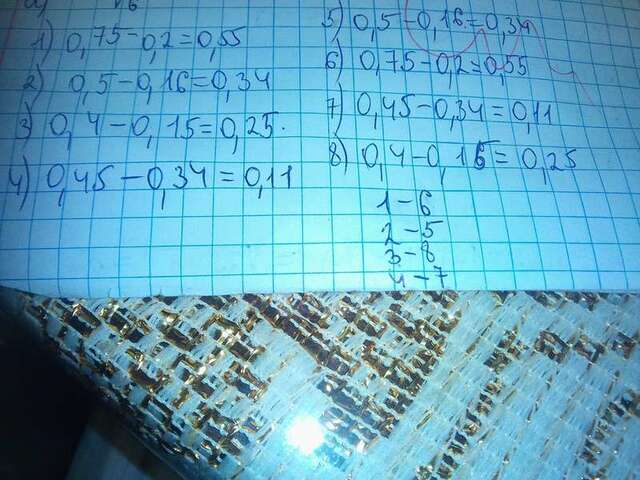 1) 0,75-0,2=0,55
2) 0,5-0,16=0,34
3) 0,4-0,15=0,25.
4) 0,45-0,34=0,11
5) 0,5-0,16=0,34
6) 0,75-0,2=0,55
7) 0,45-0,34=0,11
8) 0,4-0,15=0,25
1-6
2-5
3-8
4-7